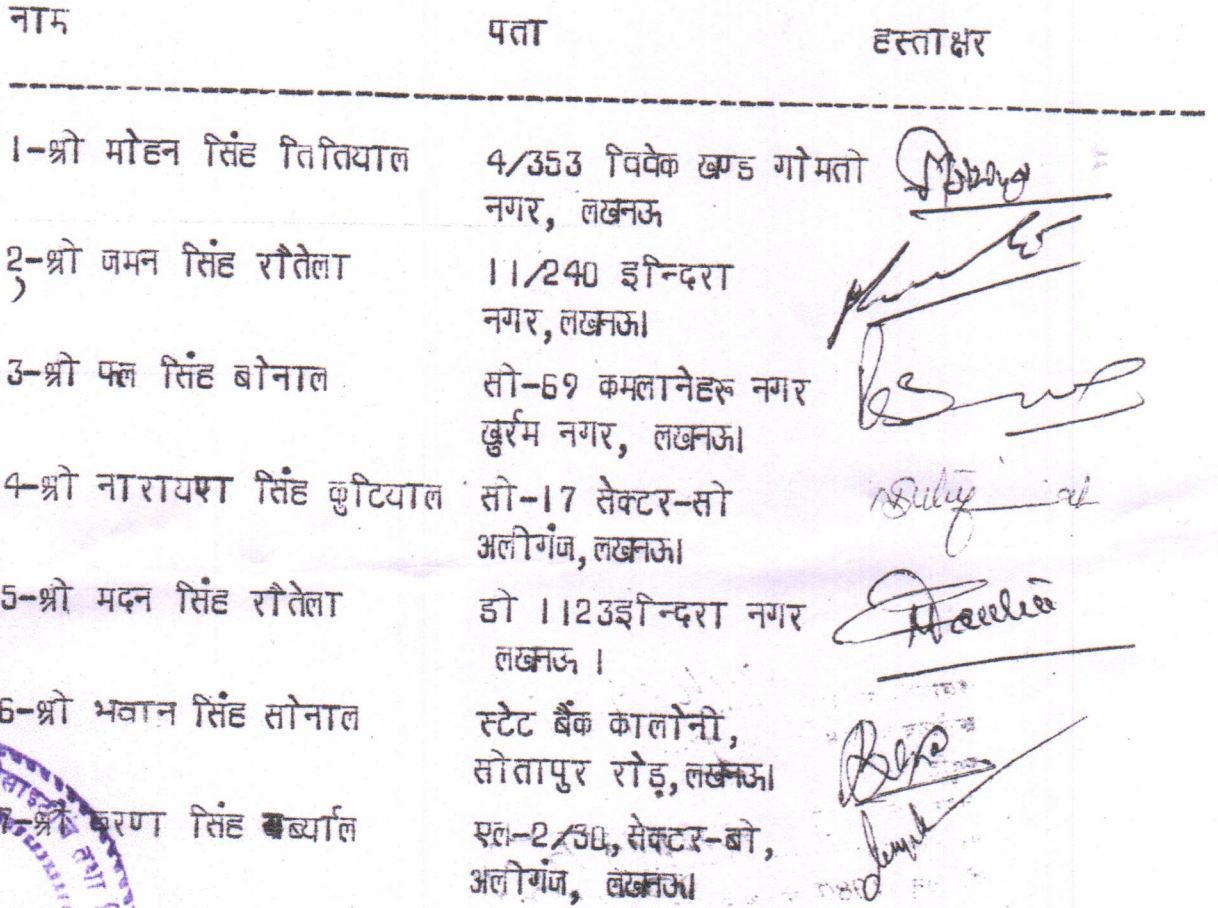 नाम पता हस्ताक्षर
1-श्री मोहन सिंह तितियाल 4/353 विवेक खण्ड गोमती
नगर, लखनऊ
2-श्री जमन सिंह रौतेला 11/240 इन्दिरा
नगर,लखनऊ।
3-श्री सिंह बोनाल सी-69 कमलानेहरू नगर
खुर्रम नगर, लखनऊ।
4-श्री नारायण सिंह कुटियाल सी-17 सेक्टर-सी
अलीगंज,लखनऊ।
5-श्री मदन सिंह रौतेला डी 1123इन्दिरा नगर
लखनऊ ।
6-श्री भवान सिंह सोनाल स्टेट बैंक कालोनी,
सीतापुर रोड़,लखनऊ।
7-श्री सिंह एल-2/30,सेक्टर-बी,
अलीगंज, लखनऊ।
तथा